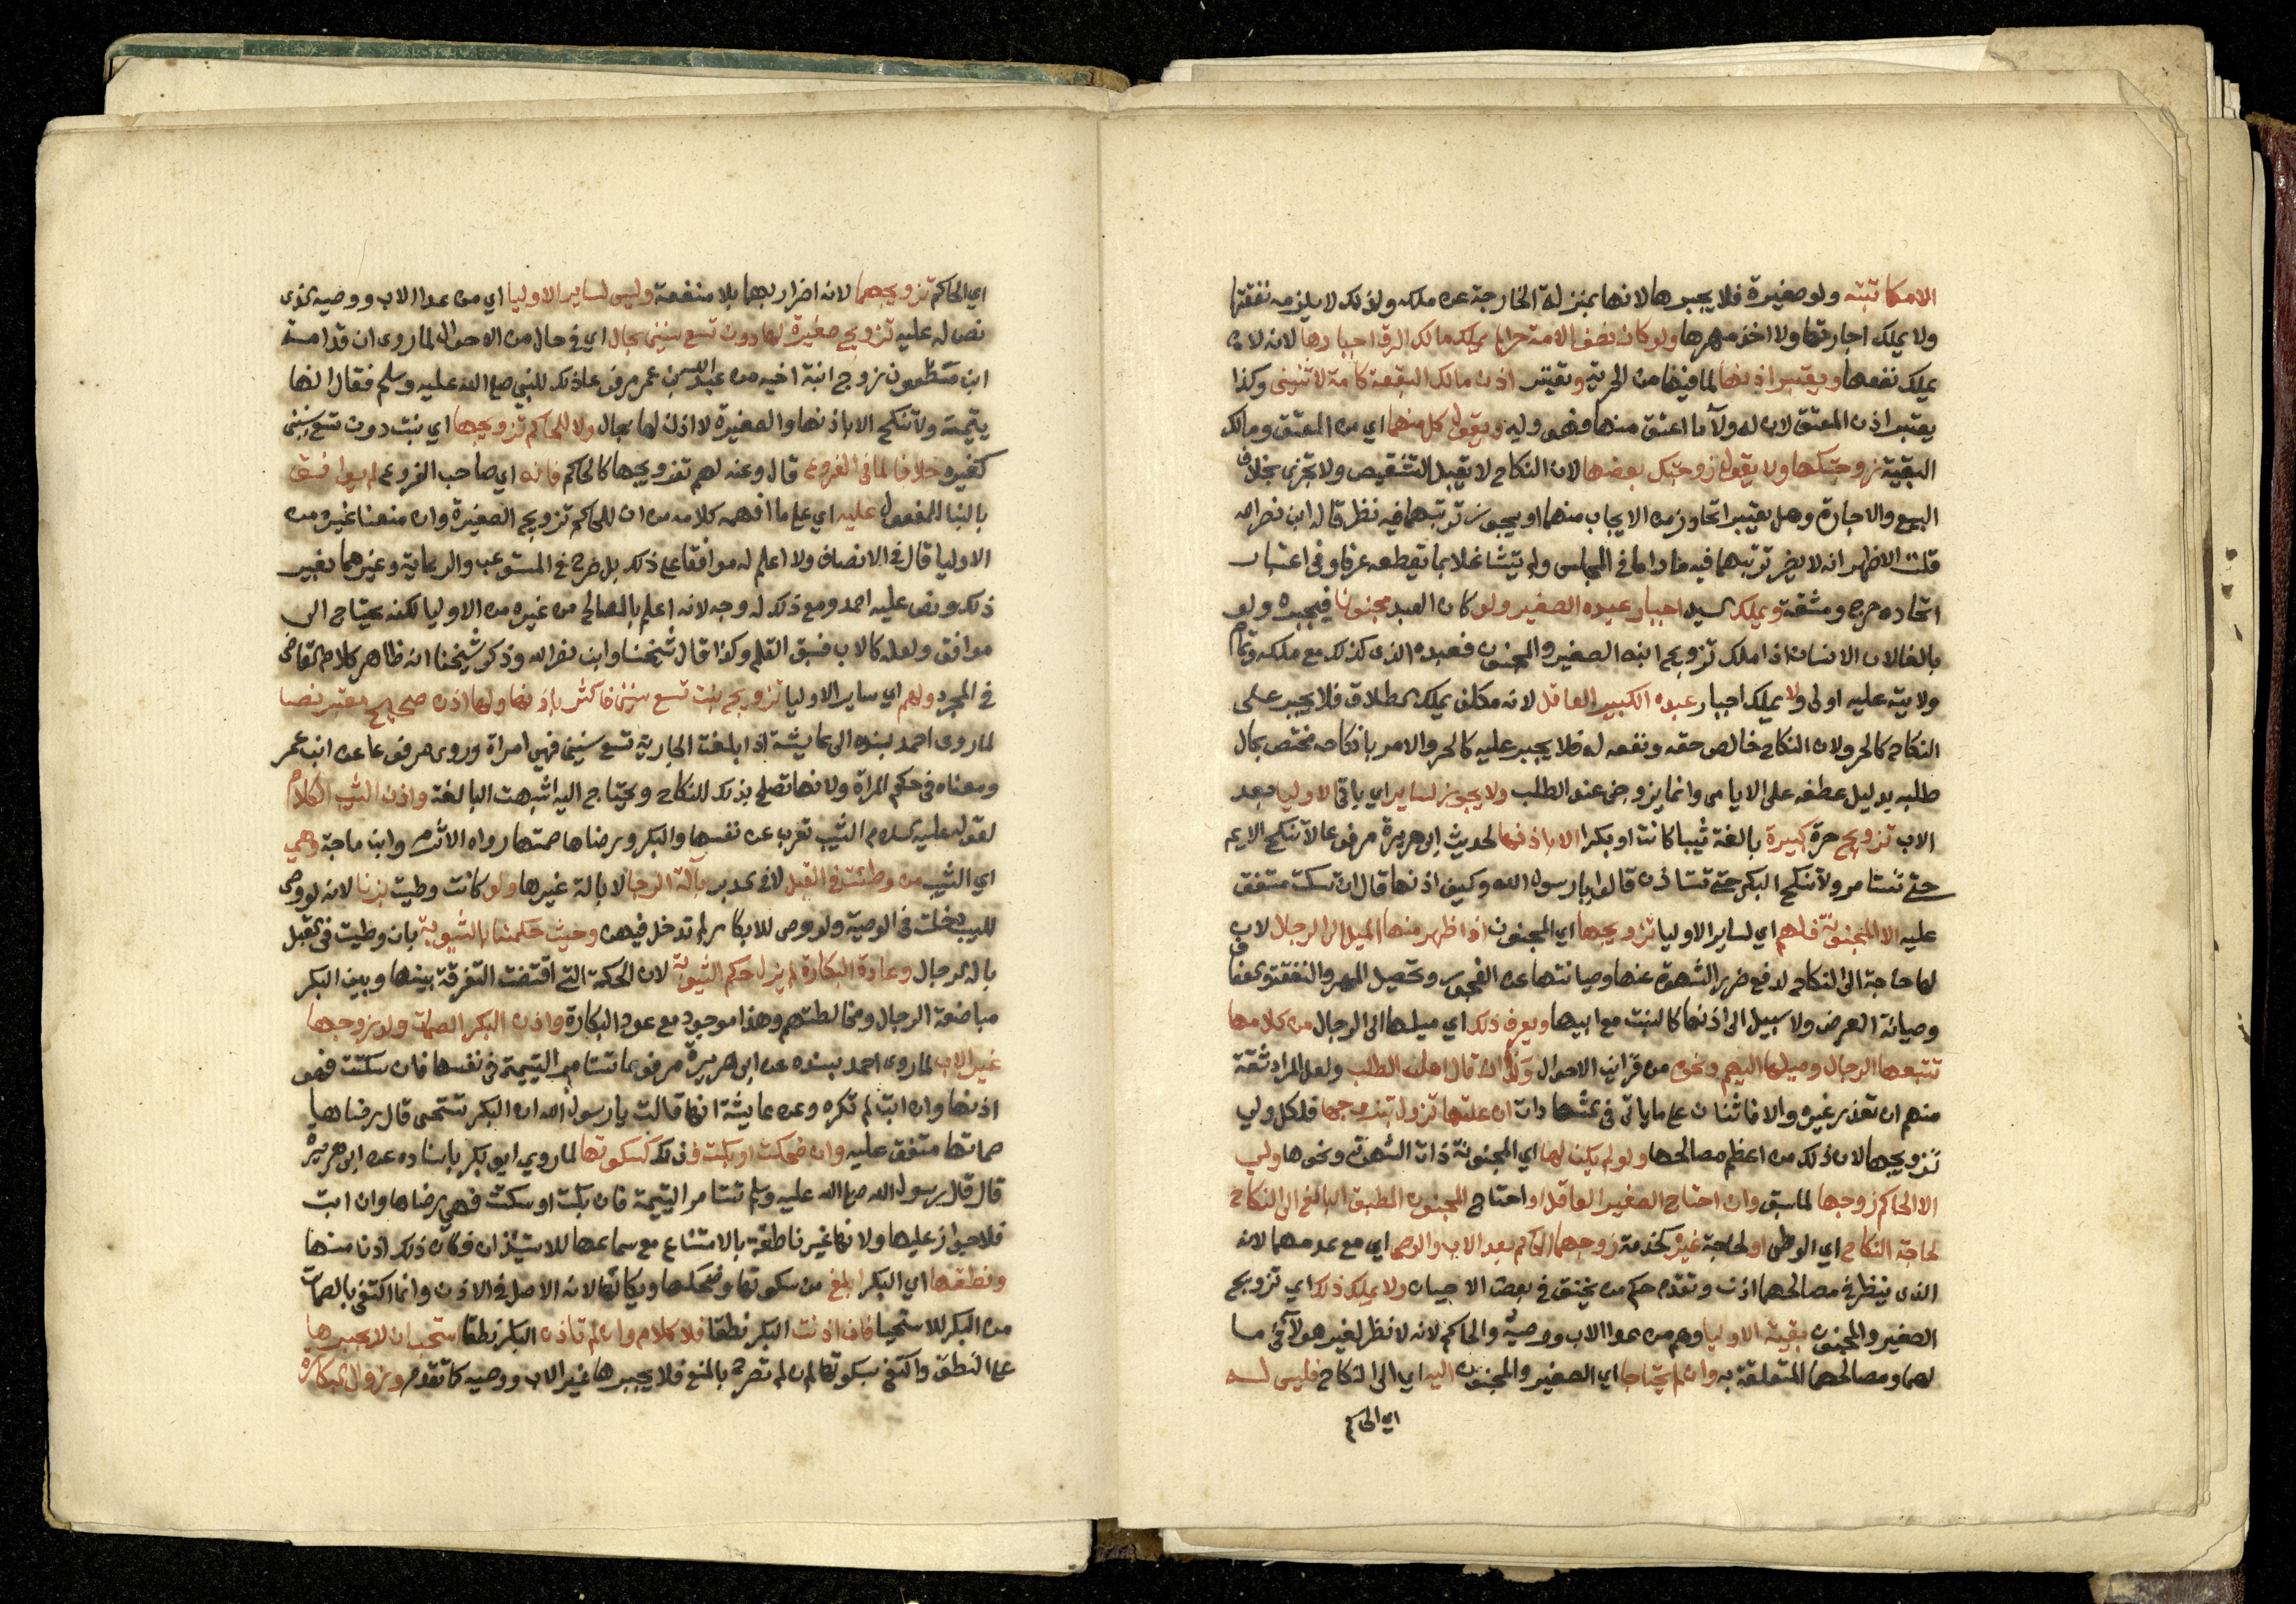 الا مكاتبته ولو صغيرة فلا يجبرها لانها بمنزلة الخارجة عن ملكه ولذلك لا يلزمه نفقتها
ولا يملك اجارتها ولا اخذ مهرها ولو كان نصف الامة حرا لم يملك مالك الرق اجبارها لانه لا
يملك نفعها ويعتبر اذنها لما فيها من الحرية ويعتبر اذن مالك البقعة كامة لاثنين وكذا
يعتبر اذن المعتق لان له ولآ ما اعتق منها فهو وليه ويقول كل منهما اي من المعتق ومالك
البقية زوجتكها ولا يقول زوجتك بعضها لان النكاح لا يقبل التشقيص ولا تجزي بخلاف
البيع والاجارة وهل يعتبر اتحاد زمن الايجاب منهما او يجوز ترتبهما فيه نظر قاله ابن نصر الله
قلت الاظهر انه لا يضر ترتبهما فيه ما داما في المجلس ولم يتشاغلا بما يقطعه عرفا وفى اعتبار
اتحاده حرج ومشقة ويملك السيد اجبار عبده الصغير ولو كان العبد مجنونا فيجبره ولو
بالغا لان الانسان اذا ملك تزويج ابنه الصغير والمجنون فعبده الذى كذلك مع ملكه وتمام
ولايته عليه اولى ولا يملك اجبار عبده الكبير العاقل لانه مكلف يملك الطلاق فلا يجبر على
النكاح كالحر ولان النكاح خالص حقه ونفعه له فلا يجبر عليه كالحر والامر بانكاحه مختص بحال
طلبه بدليل عطفه على الايامى وانما يزوجن عند الطلب ولا يجوز لسائر اي باقي الاوليا بعد
الاب تزويج حرة كبيرة بالغة ثيبا كانت او بكرا الا باذنها لحديث ابي هريرة مرفوعا لا تنكح الايم
حتى تستامر ولا تنكح البكر حتى تستأذن قالوا يا رسول الله وكيف اذنها قال ان تسكت متفق
عليه الا المجنونة فلهم اي لساير الاوليا تزويجها اي المجنون اذا ظهر منها الميل الى الرجال لان
لها حاجة الى النكاح لدفع ضرر الشهوة عنها وصيانتها عن الفجور وتحصيل المهر والنفقة والعفاف
وصيانة العرض ولا سبيل الى اذنها كالبنت مع ابيها ويعرف ذلك اي ميلها الى الرجال من كلامها
تتبعها الرجال وميلها اليهم ونحوه من قراين الاحوال وكذا ان قال اهل الطب ولعل المراد ثقة
منهم ان تعذر غيره والا فاثنان على ما ياتى فى الشهادات ان علتها تزول بتزوجها فلكل ولي
تزويجها لان ذلك من اعظم مصالحها ولو لم يكن لها اي المجنونة ذات الشهوة ونحوها ولي
الا الحاكم زوجها لما سبق وان احتاج الصغير العاقل او احتاج المجنون المطبق البالغ الى النكاح
لحاجة النكاح اي الوطى او لحاجة غيره كخدمة زوجهما الحاكم بعد الاب والوصي اي مع عدمهما لانه
الذى ينظر فى مصالحهما اذن وتقدم حكم من يخنق في بعض الاحيان ولا يملك ذلك اي تزويج
الصغير والمجنون بقية الاوليا وهم من عدا الاب ووصيه والحاكم لانه لا نظر لغير هولآء في ما
لهما ومصالحهما المتعلقة به وان لم يحتاجا اي الصغير والمجنون اليه اي الى النكاح فليس له
اي الحاكم
اي الحاكم تزويجهما لانه اضرار بهما بلا منفعة وليس لساير الاوليا اي من عدا الاب ووصيه الذى
نص له عليه تزويج صغيرة لها دون تسع سنين بحال اي في حال من الاحوال لما روى ان قدامة
ابن مظعون زوج ابنة اخيه من عبد الله بن عمر فرفع ذلك للنبي صلى الله عليه وسلم فقال انها
يتيمة ولا تنكح الا باذنها والصغيرة لا اذن لها بحال ولا للحاكم تزويجها اي بنت دون تسع سنين
كغيره خلافا لما فى الفروع قال وعنه لهم تزويجها كالحاكم فانه اي صاحب الفروع لم يوافق
بالبنا للمفعول عليه اي على ما افهمه كلامه من ان للحاكم تزويج الصغيرة وان منعنا غيره من
الاوليا قال فى الانصاف ولا اعلم له موافقا على ذلك بل صرح فى المستوعب والرعاية وغيرهما بغير
ذلك ونص عليه احمد ومع ذلك له وجه لانه اعلم بالمصالح من غيره من الاوليا لكنه يحتاج الى
موافق ولعله كالاب فسبق القلم وكذا قال شيخنا وابن نصر الله وذكر شيخنا انه ظاهر كلام القاضي
في المجرد ولهم اي ساير الاوليا تزويج بنت تسع سنين فاكثر باذنها ولها اذن صحيح معتبر نصا
لما روى احمد بسنده الى عايشة اذا بلغت الجارية تسع سنين فهي امراة وروى مرفوعا عن ابن عمر
ومعناه فى حكم المراة ولانها تصلح بذلك للنكاح وتحتاج اليه اشبهت البالغة واذن الثيب الكلام
لقوله عليه السلام الثيب تعرب عن نفسها والبكر رضاها صمتها رواه الاثرم وابن ماجة وهي
اي الثيب من وطئت في القبل لا فى الدبر بآلة الرجال لا بآلة غيرها ولو كانت وطيت بزنا لانه لو وصى
للثيب دخلت فى الوصية ولو وصى للابكار لم تدخل فيهن وحيث حكمنا بالثيوبة بان وطيت فى القبل
بالة الرجال وعادة البكارة لم يزل حكم الثيوبة لان الحكمة التي اقتضت التفرقة بينها وبين البكر
مباضعة الرجال ومخالطتهم وهذا موجود مع عود البكارة واذن البكر الصمات ولو زوجها
غير الاب لما روى احمد بسنده عن ابى هريرة مرفوعا تستامر اليتيمة فى نفسها فان سكتت فهو
اذنها وان ابت لم تكره وعن عايشة انها قالت يا رسول الله ان البكر تستحى قال رضاها
صماتها متفق عليه وان ضحكت او بكت فذلك كسكوتها لما روي ابو بكر باسناده عن ابى هريرة
قال قال رسول الله صلى الله عليه وسلم تستامر اليتيمة فان بكت او سكتت فهي رضاها وان ابت
فلا جواز عليها ولانها غير ناطقة بالامتناع مع سماعها للاستيذان فكان ذلك اذنا منها
ونطقها اي البكر ابلغ من سكوتها وضحكها وبكائها لانه الاصل فى الاذن وانما اكتفى بالصمات
من البكر للاستحيا فان اذنت البكر نطقا فلا كلام وان لم تاذن البكر نطقا استحب ان لا يجبرها
على النطق واكتفى بسكوتها ان لم تصرح بالمنع فلا يجبرها غير الاب ووصيه كما تقدم وزوال البكارة